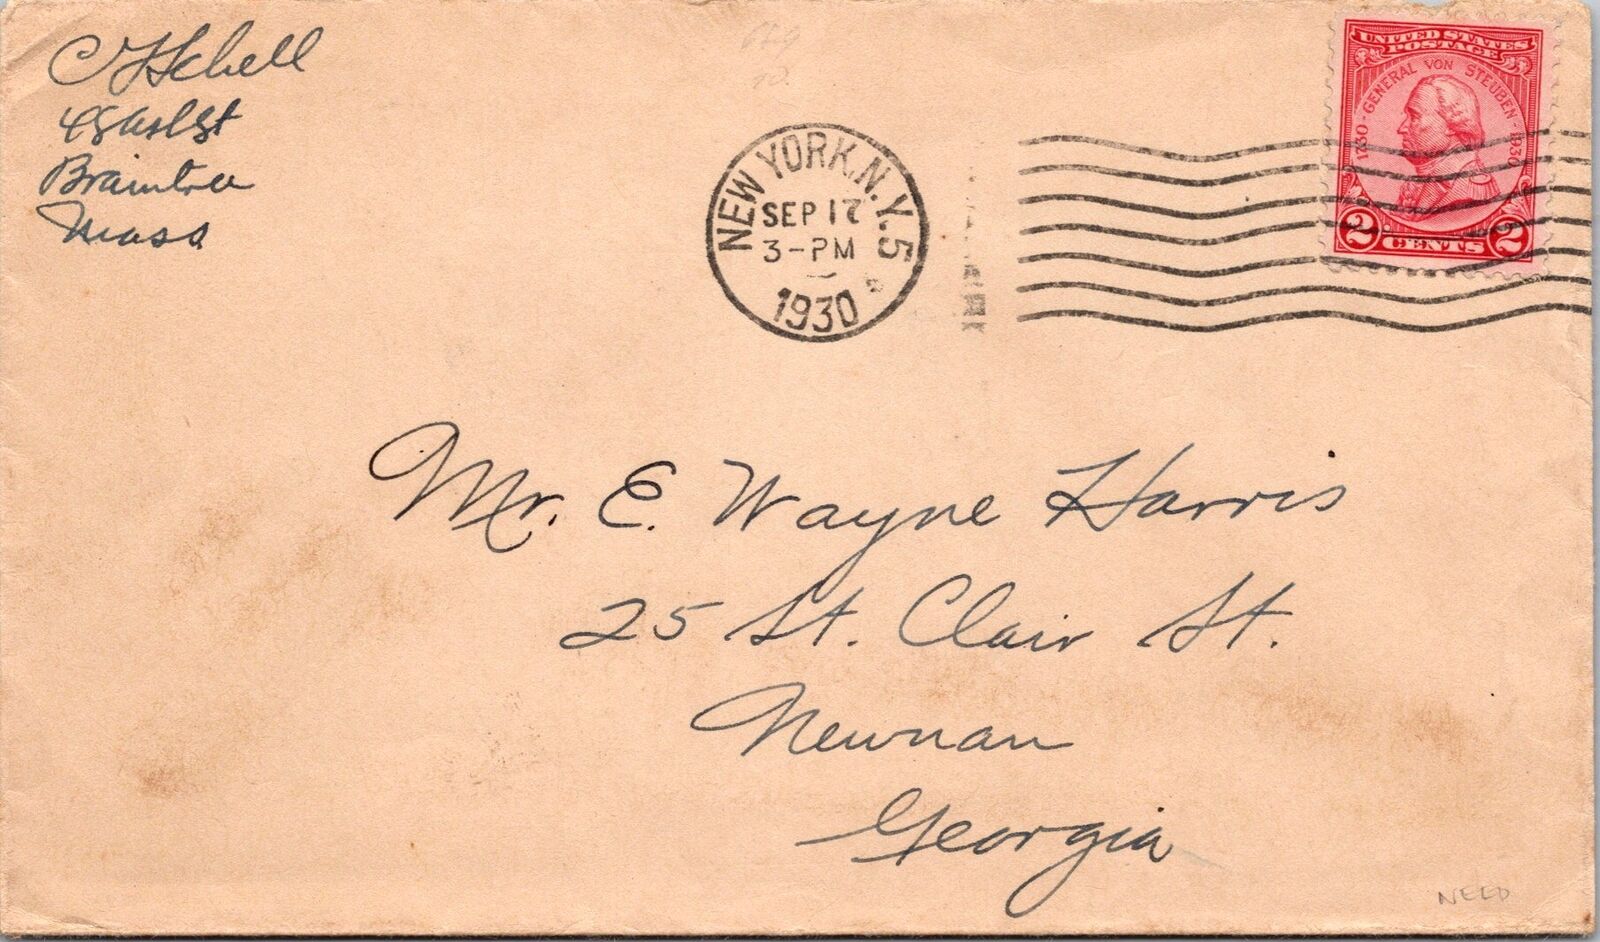 C F Schell
48 Ash St
Braintree
Mass
NEW YORK, N.Y. 5
SEP 17
3-PM
1930
UNITED STATES
POSTAGE
1730 - GENERAL VON STEUBEN - 1930
2 CENTS 2
Mr. E. Wayne Harris
25 St. Clair St.
Newnan
Georgia
NEED